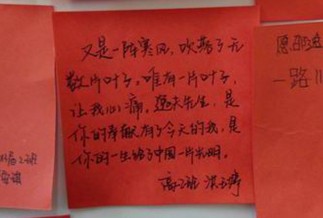 又是一阵寒风，吹落了无
数片叶子，唯有一片叶子，
让我心痛。逸夫先生，是
你的奉献有了今天的我，是
你的一生给了中国一片光明。
高二班
愿
一路